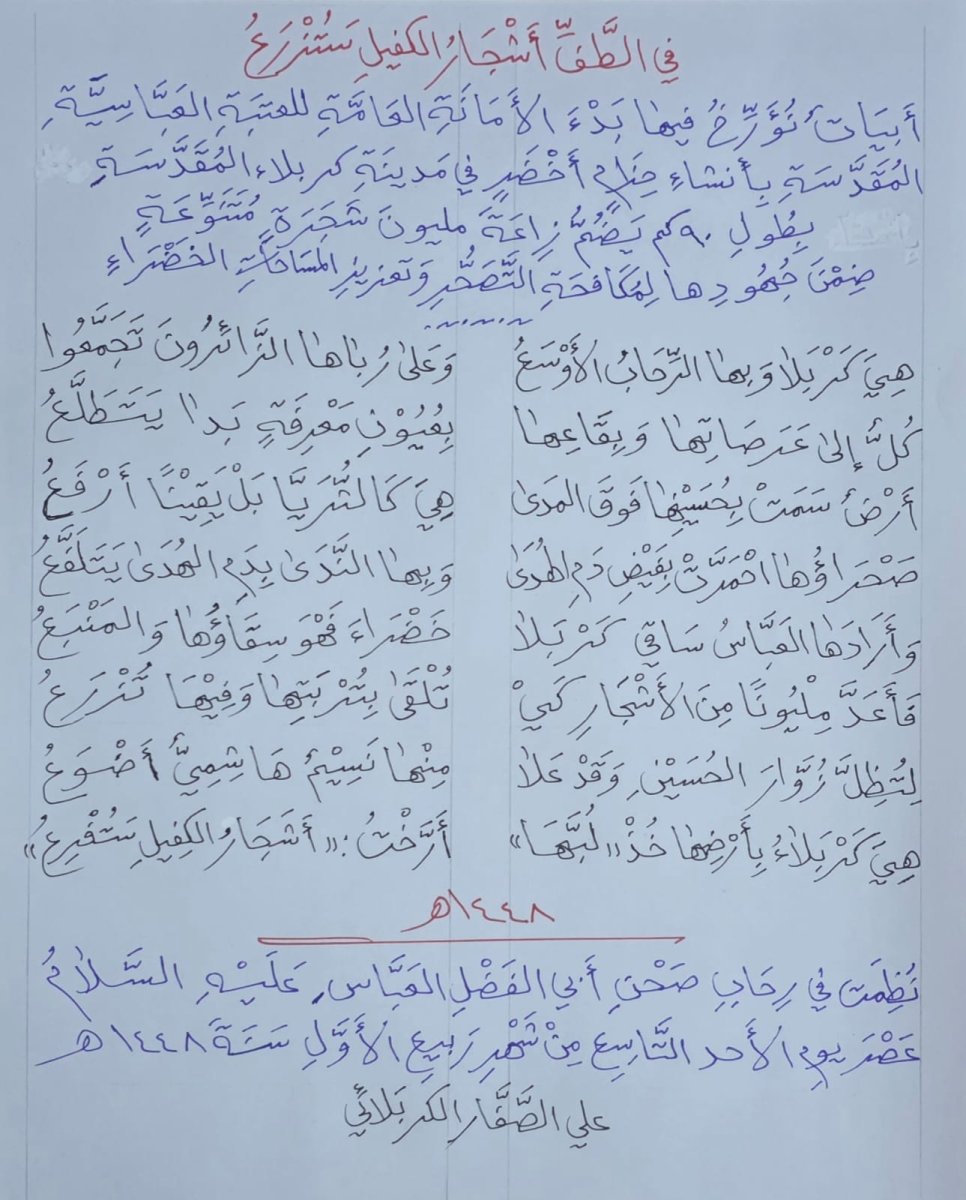 في الطَّفِّ أَشْجَارُ الكفيلِ سَتُزْرَعُ
أَبيَاتٌ نُؤَرِّخُ فيها بَدْءَ الأَمَانَةِ العَامَّةِ للعتبَةِ العَبَّاسِيَّةِ
المُقَدَّسَةِ بِأنشاءِ حِزامٍ أَخْضَرٍ في مَدينَةِ كربلاء المُقَدَّسَةِ
بِطُولِ ٩٠ كم يَضُمُّ زِرَاعَةَ مليونَ شَجَرَةٍ مُتَنَوِّعَةٍ
ضِمْنَ جُهُودِها لِمُكَافحَةِ التَّصَحُّرِ وَتعزيزِ المسَاحَاتِ الخَضْرَاءِ
هِيَ كَرْبَلا وَبِها الرِّحَابُ الأَوْسَعُ وَعَلىٰ رُبَاها الزَّائرُونَ تَجَمَّعُوا
كُلٌّ إلىٰ عَرَصَاتِهَا وَبِقَاعِهَا بِعُيُوْنِ مَعْرِفَةٍ بَدا يَتَطَلَّعُ
أَرْضٌ سَمَتْ بِحُسَيْنِهَا فَوقَ المَدىٰ هِيَ كَالثُّرَيَّا بَلْ يَقِيْنًا أَرْفَعُ
صَحْرَاؤُها احْمَرَّتْ بِفَيْضِ دَمِ الهُدَىٰ وَبِها النَّدَىٰ بِدَمِ الهُدَىٰ يَتَلَفَّعُ
وَأَرَادَها العَبَّاسُ سَاقي كَرْبَلا خَضْرَاءَ فَهْوَ سِقَاؤُها وَالمَنْبَعُ
فَأَعَدَّ مِلْيُونًا مِنَ الأَشْجَارِ كَيْ تُلْقَىٰ بِتُرْبَتِها وَفِيْهَا تُزْرَعُ
لِتُظِلَّ زُوَّارَ الحُسَيْنِ وَقَدْ عَلا مِنْها نَسِيْمٌ هَاشِمِيٌّ أَضْوَعُ
هِيَ كَرْبَلاءُ بِأَرْضِها خُذْ «لُبَّهَا» أَرَّخْتُ: «أَشجَارُ الكفِيلِ سَتُفْرِعُ»
١٤٤٨هـ
نُظِمَت في رِحَابِ صَحْنِ أَبي الفَضْلِ العَبَّاسِ عَلَيْهِ السَّلامُ
عَصْرَ يومِ الأَحد التَّاسِعِ مِنْ شَهْرِ رَبيعِ الأَوَّلِ سَنَةَ ١٤٤٨هـ
علي الصَّفَّار الكربَلائي